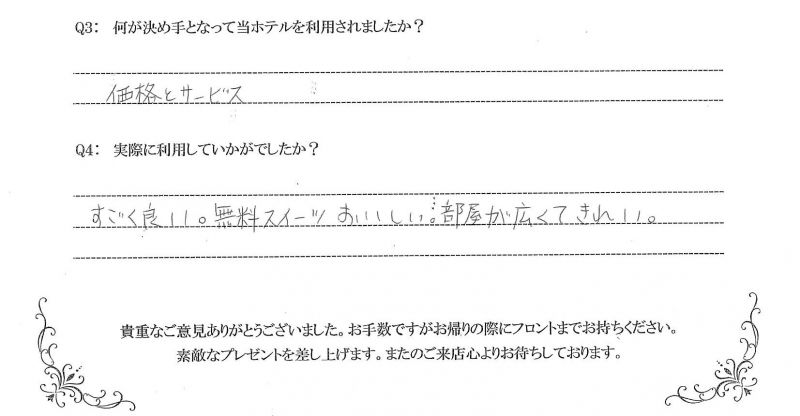 Q3: 何が決め手となって当ホテルを利用されましたか？
価格とサービス
Q4: 実際に利用していかがでしたか？
すごく良い。無料スイーツおいしい。部屋が広くてきれい。
貴重なご意見ありがとうございました。お手数ですがお帰りの際にフロントまでお持ちください。
素敵なプレゼントを差し上げます。またのご来店心よりお待ちしております。